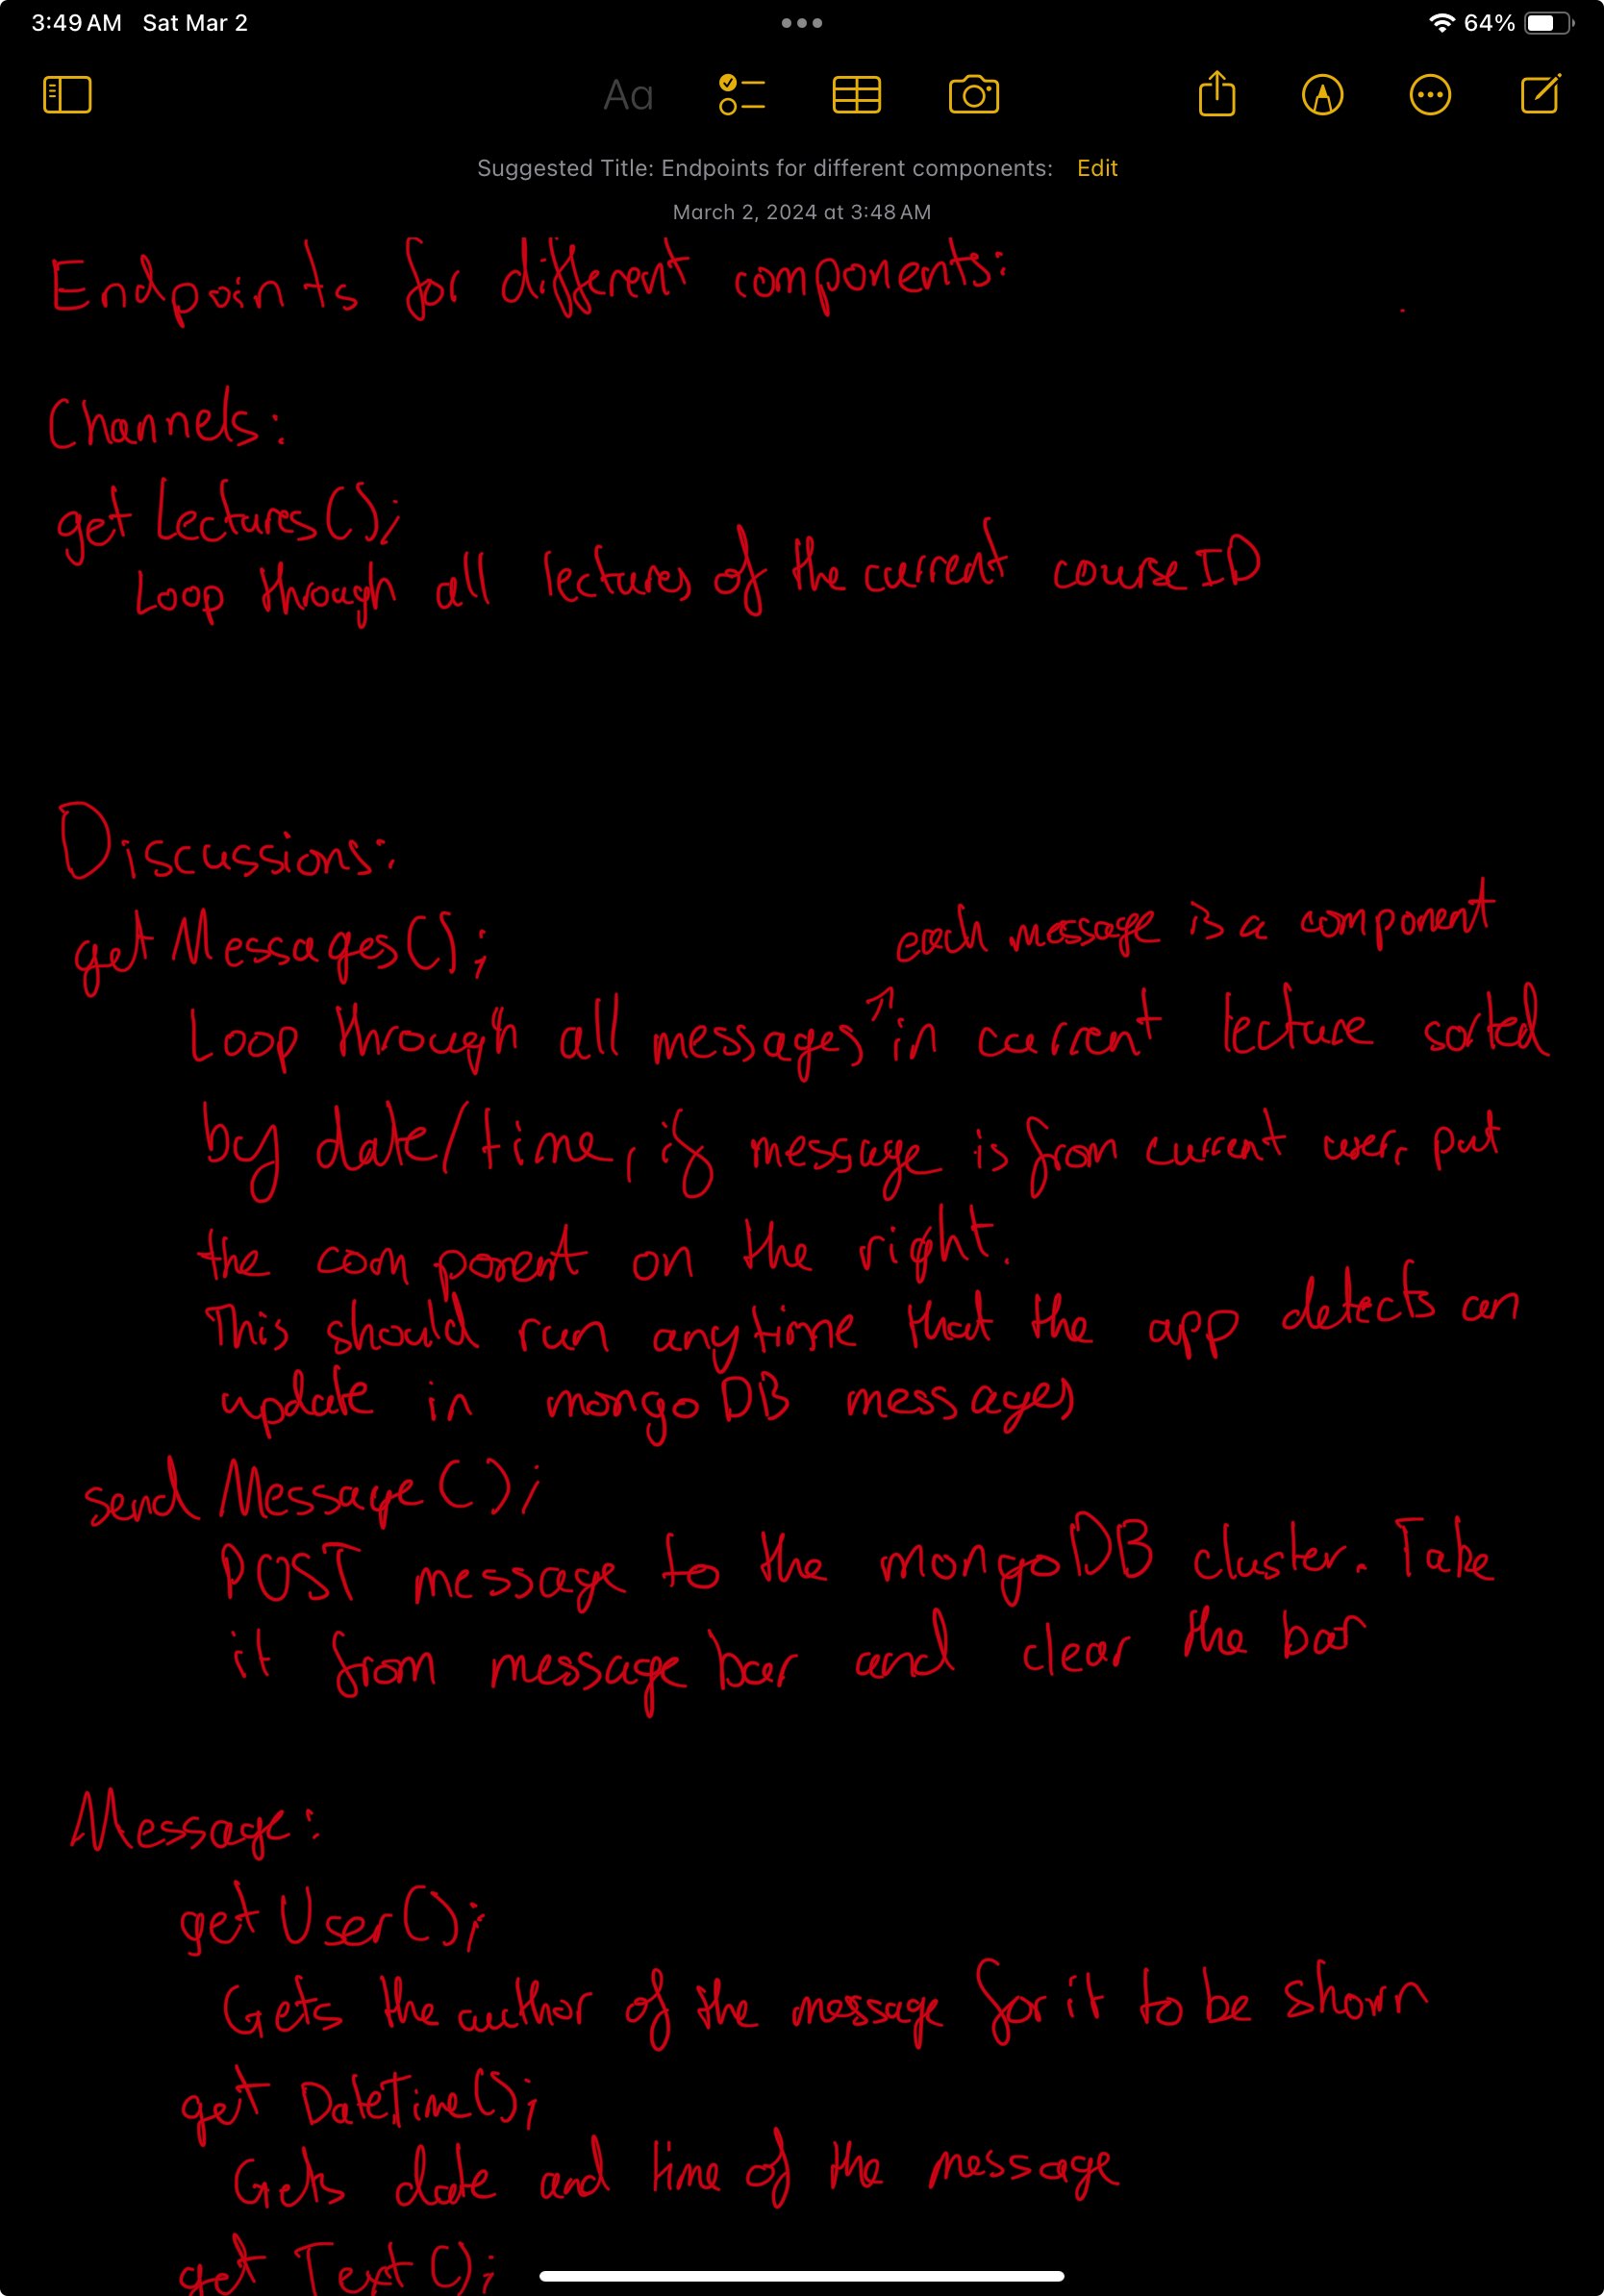 3:49 AM Sat Mar 2
64%
Aa
Suggested Title: Endpoints for different components: Edit
March 2, 2024 at 3:48 AM
Endpoints for different components:
Channels:
getLectures();
Loop through all lectures of the current courseID
Discussions:
getMessages();
each message is a component
Loop through all messages in current lecture sorted
by date/time, if message is from current user, put
the component on the right.
This should run anytime that the app detects an
update in mongoDB messages
sendMessage();
POST message to the mongoDB cluster. Take
it from message bar and clear the bar
Message:
getUser();
Gets the author of the message for it to be shown
getDateTime();
Gets date and time of the message
getText();